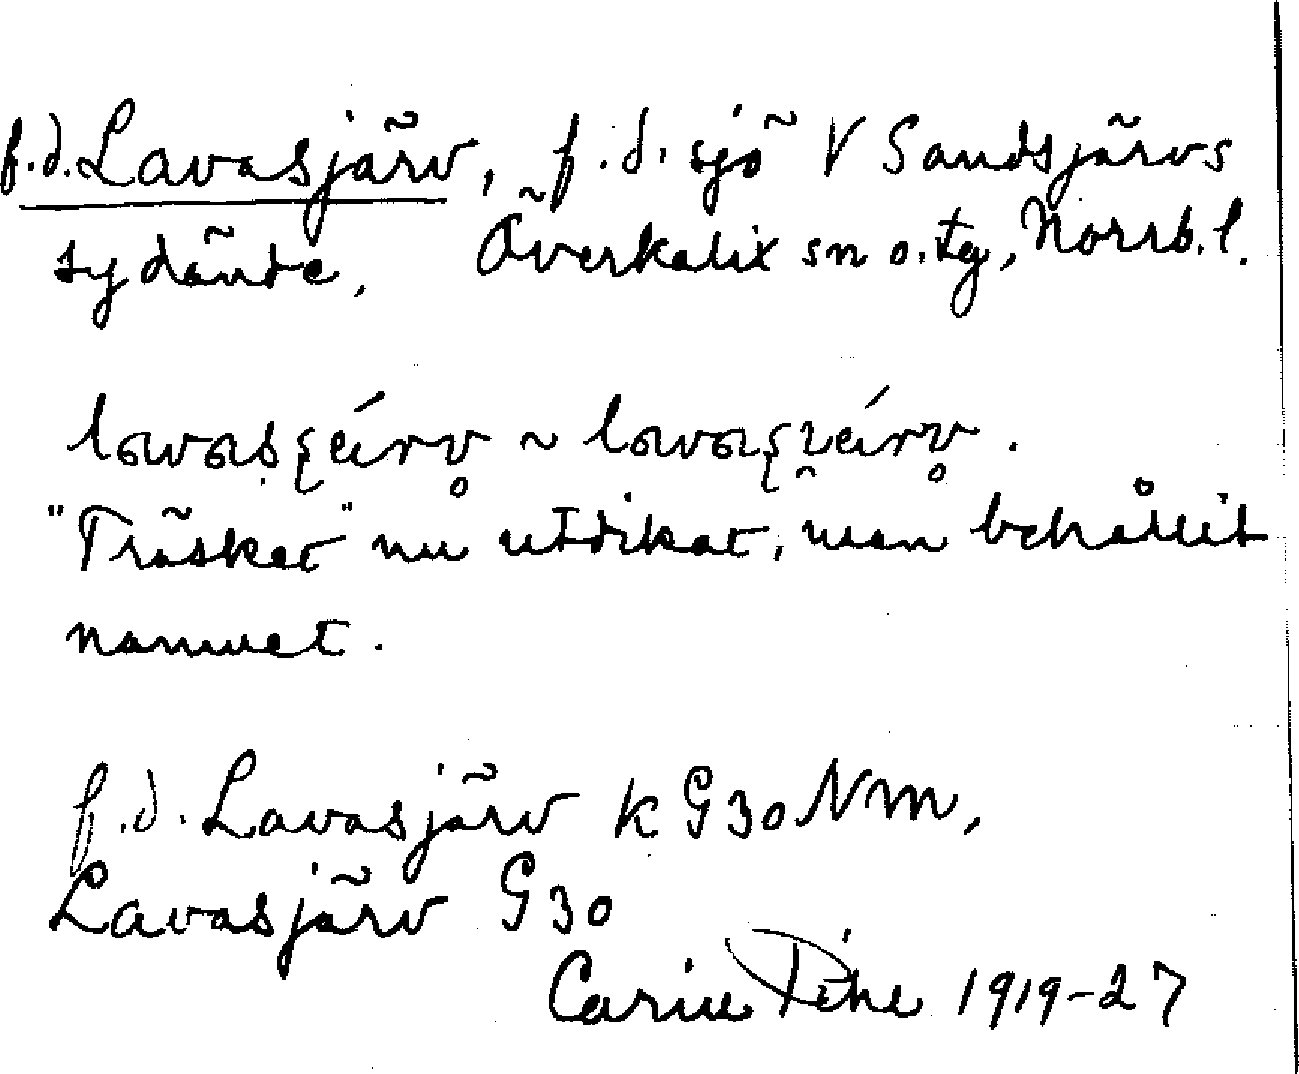 f.d. Lavasjärv, f.d. sjö V Sandsjärvs
sydände, Överkalix sn o. tg, Norrb. l.
"Träsket" nu utdikat, men behållit
namnet.
f.d. Lavasjärv k G30 NM,
Lavasjärv G30
Carin Pihl 1919-27